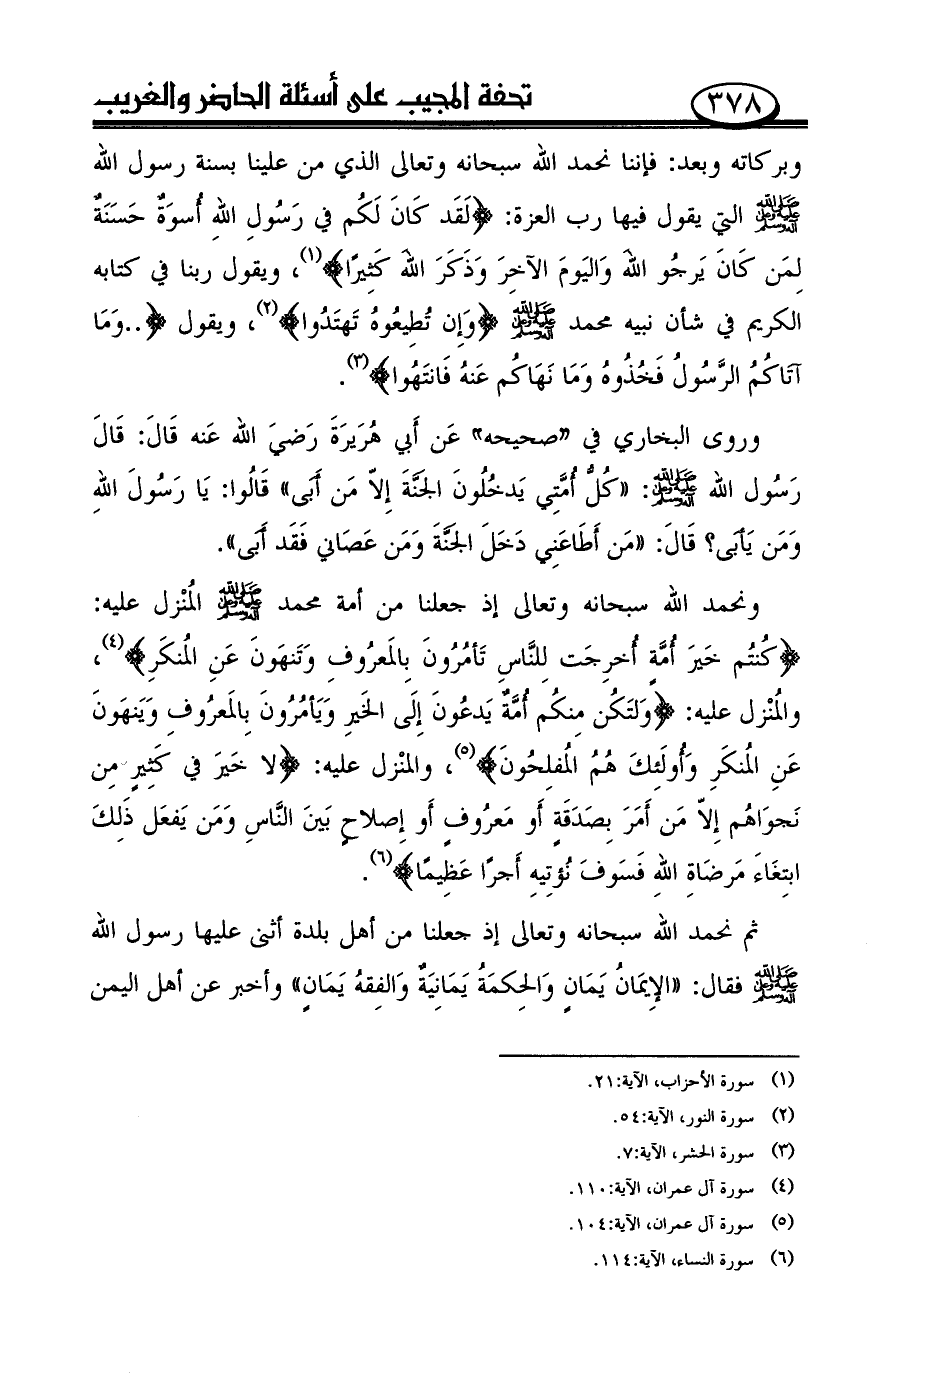 ٣٧٨ تحفة المجيب على أسئلة الحاضر والغريب
وبركاته وبعد: فإننا نحمد الله سبحانه وتعالى الذي من علينا بسنة رسول الله
ﷺ التي يقول فيها رب العزة: ﴿لَقَد كَانَ لَكُم في رَسُولِ اللهِ أُسوَةٌ حَسَنَةٌ
لِمَن كَانَ يَرجُو اللهَ وَاليَومَ الآخِرَ وَذَكَرَ اللهَ كَثِيرًا﴾(١)، ويقول ربنا في كتابه
الكريم في شأن نبيه محمد ﷺ ﴿وَإِن تُطِيعُوهُ تَهتَدُوا﴾(٢)، ويقول ﴿..وَمَا
آتَاكُمُ الرَّسُولُ فَخُذُوهُ وَمَا نَهَاكُم عَنهُ فَانتَهُوا﴾(٣).
وروى البخاري في «صحيحه» عَن أَبي هُرَيرَةَ رَضيَ الله عَنه قَالَ: قَالَ
رَسُول الله ﷺ: «كُلُّ أُمَّتِي يَدخُلُونَ الجَنَّةَ إِلاّ مَن أَبَى» قَالُوا: يَا رَسُولَ اللهِ
وَمَن يَأبَى؟ قَالَ: «مَن أَطَاعَنِي دَخَلَ الجَنَّةَ وَمَن عَصَاني فَقَد أَبَى».
ونحمد الله سبحانه وتعالى إذ جعلنا من أمة محمد ﷺ المُنْزل عليه:
﴿كُنتُم خَيرَ أُمَّةٍ أُخرِجَت لِلنَّاسِ تَأمُرُونَ بِالمَعرُوفِ وَتَنهَونَ عَنِ المُنكَرِ﴾(٤)،
والمُنْزل عليه: ﴿وَلتَكُن مِنكُم أُمَّةٌ يَدعُونَ إِلَى الخَيرِ وَيَأمُرُونَ بِالمَعرُوفِ وَيَنهَونَ
عَنِ المُنكَرِ وَأُولَئِكَ هُمُ المُفلِحُونَ﴾(٥)، والمنْزل عليه: ﴿لا خَيرَ في كَثِيرٍ مِن
نَجوَاهُم إِلاّ مَن أَمَرَ بِصَدَقَةٍ أَو مَعرُوفٍ أَو إِصلاحٍ بَينَ النَّاسِ وَمَن يَفعَل ذَلِكَ
ابتِغَاءَ مَرضَاةِ اللهِ فَسَوفَ نُؤتِيهِ أَجرًا عَظِيمًا﴾(٦).
ثم نحمد الله سبحانه وتعالى إذ جعلنا من أهل بلدة أثنى عليها رسول الله
ﷺ فقال: «الإِيمَانُ يَمَانٍ وَالحِكمَةُ يَمَانِيَةٌ وَالفِقهُ يَمَانٍ» وأخبر عن أهل اليمن
(١) سورة الأحزاب، الآية:٢١.
(٢) سورة النور، الآية:٥٤.
(٣) سورة الحشر، الآية:٧.
(٤) سورة آل عمران، الآية:١١٠.
(٥) سورة آل عمران، الآية:١٠٤.
(٦) سورة النساء، الآية:١١٤.